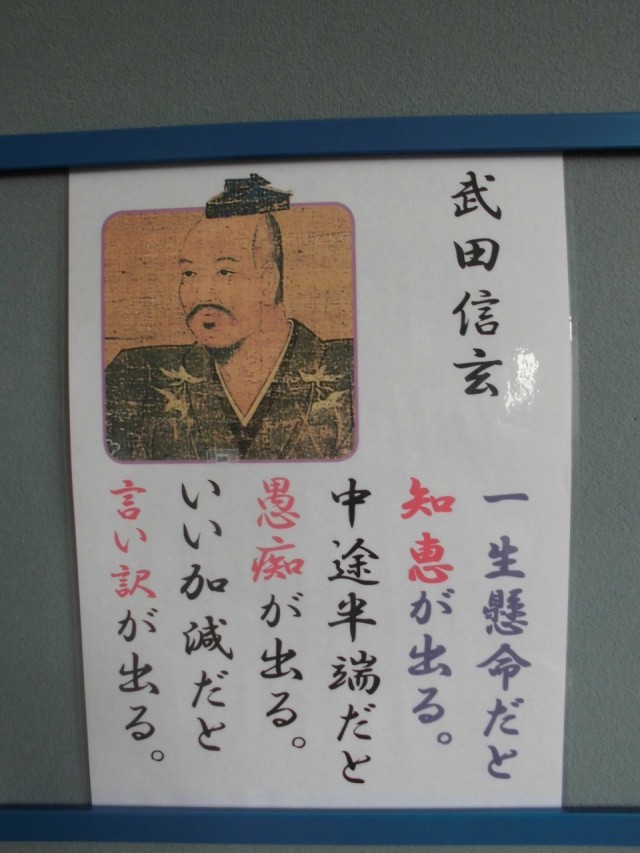 武田信玄
一生懸命だと
知恵が出る。
中途半端だと
愚痴が出る。
いい加減だと
言い訳が出る。